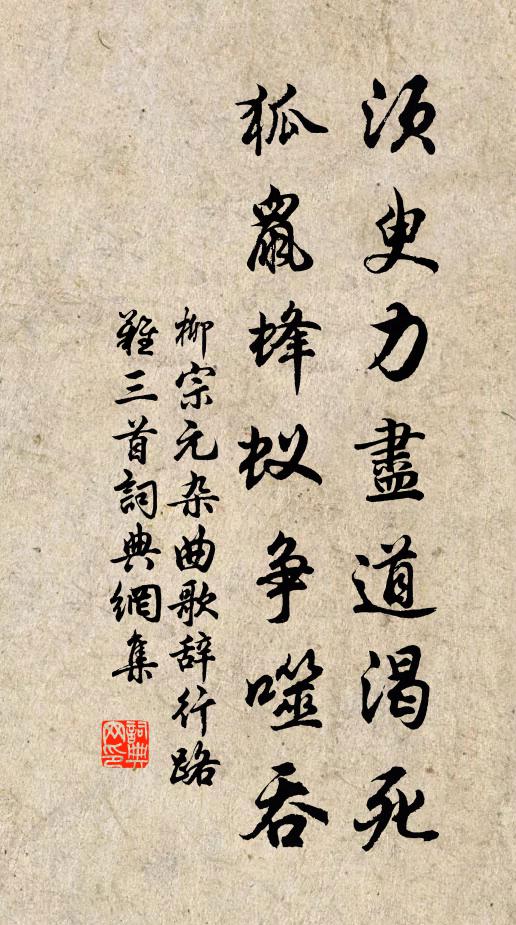 须臾力盡道渴死
狐鼠蜂蚁争噬吞
柳宗元杂曲歌辞行路
難三首詞典網集
詞典网印